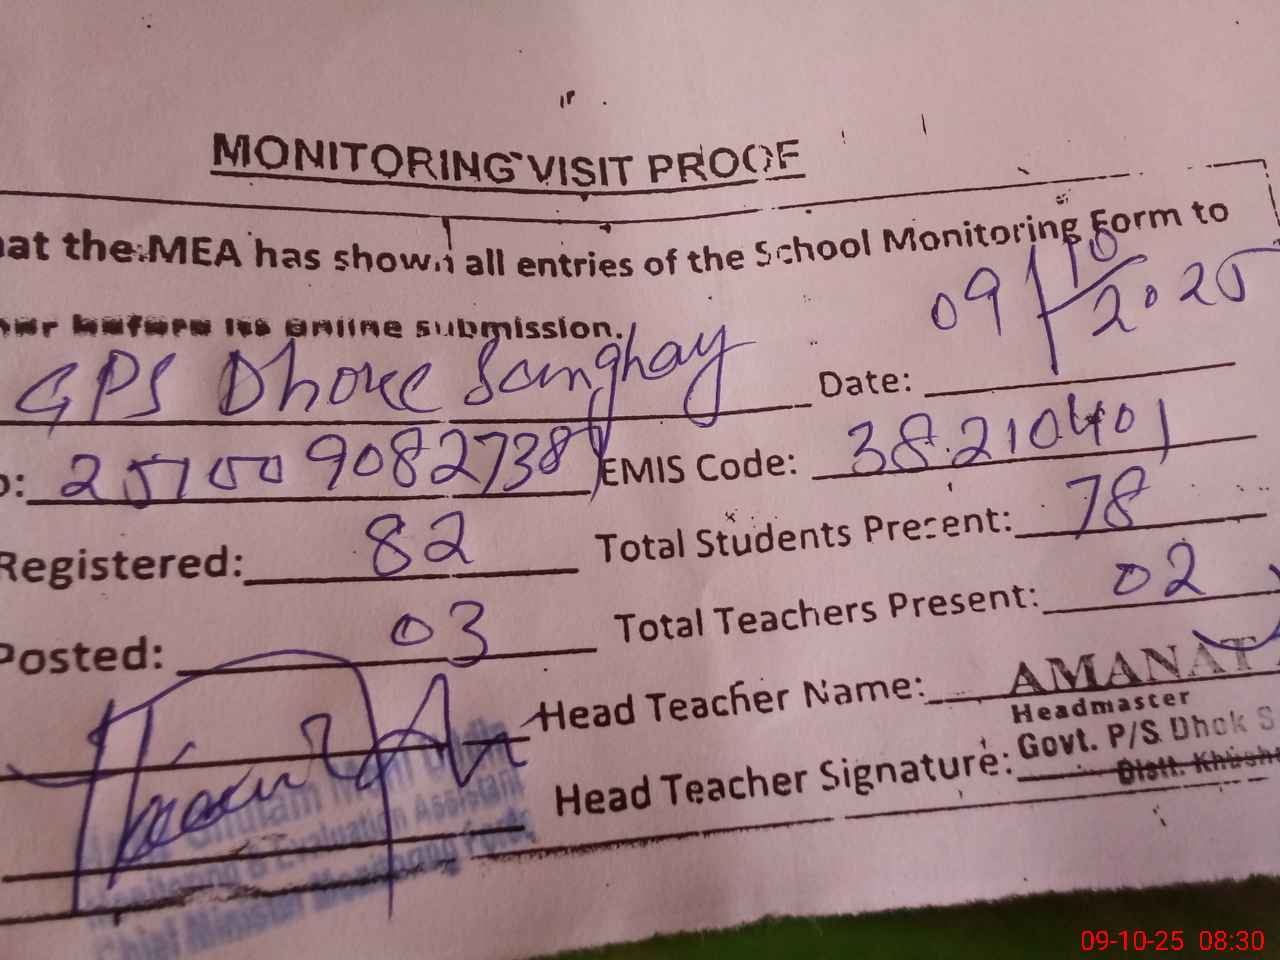 MONITORING VISIT PROOF
at the MEA has shown all entries of the School Monitoring Form to
before its online submission.
GPS Dhoke Sanghay Date: 09/10/2025
EMIS Code: 38210401
Registered: 82 Total Students Present: 78
Posted: 03 Total Teachers Present: 02
Head Teacher Name: AMANAT
Headmaster
Head Teacher Signature: Govt. P/S Dhok S
Distt. Khush
Monitoring & Evaluation Assistant
Chief Minister Monitoring Force
09-10-25 08:30